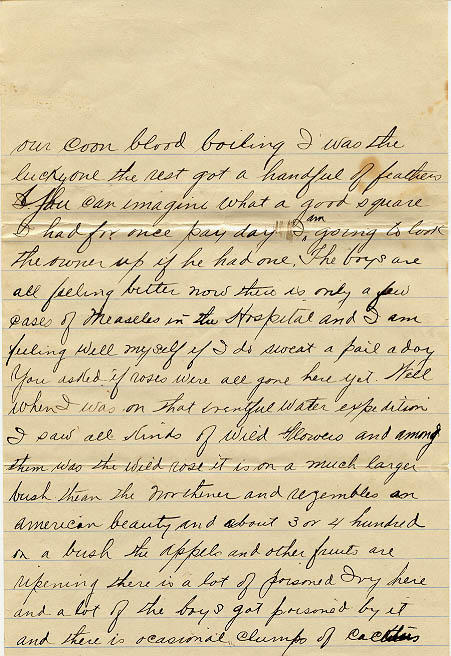 our coon blood boiling I was the
lucky one the rest got a handful of feathers
You can imagine what a good square
I had for once pay day I am going to look
the owner up if he had one. The boys are
all feeling better now there is only a few
cases of Measles in the Hospital and I am
feeling well myself if I do sweat a pail a day
You asked if roses were all gone here yet. Well
when I was on that eventful water expedition
I saw all kinds of wild flowers and among
them was the wild rose it is on a much larger
bush than the Northener and resembles an
american beauty and about 3 or 4 hundred
on a bush the appels and other fruits are
ripening there is a lot of poisoned Ivy here
and a lot of the boys got poisoned by it
and there is ocasional clumps of cactus